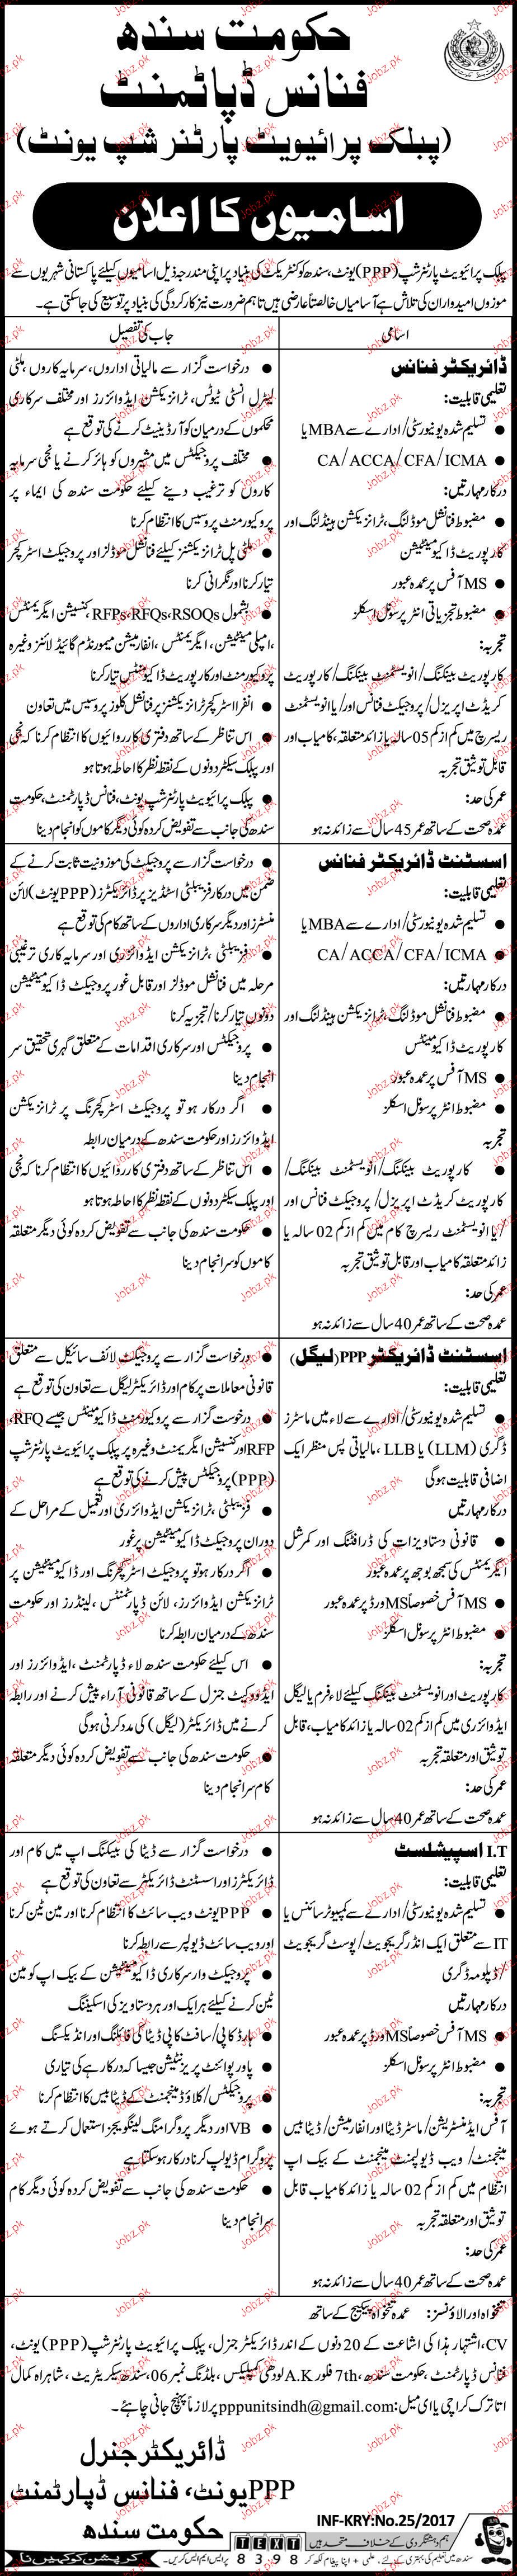 حکومت سندھ
فنانس ڈپاٹمنٹ
(پبلک پرائیویٹ پارٹنر شپ یونٹ)
اسامیوں کا اعلان
پبلک پرائیویٹ پارٹنر شپ (PPP) یونٹ، سندھ کو کنٹریکٹ کی بنیاد پر اپنی مندرجہ ذیل اسامیوں کیلئے پاکستانی شہریوں سے
موزوں امیدواران کی تلاش ہے آسامیاں خالصتاً عارضی ہیں تاہم ضرورت نیز کارکردگی کی بنیاد پر توسیع کی جا سکتی ہے۔
اسامی
جاب کی تفصیل
ڈائریکٹر فنانس
تعلیمی قابلیت:
● تسلیم شدہ یونیورسٹی/ ادارے سے MBA یا
● CA/ACCA/CFA/ICMA
درکار مہارتیں:
● مضبوط فنانشل موڈلنگ، ٹرانزیکشن ہینڈلنگ اور
کارپوریٹ ڈاکیومینٹیشن
● MS آفس پر عمدہ عبور
● مضبوط تجزیاتی انٹر پرسونل اسکلز
تجربہ:
کارپوریٹ بینکنگ/ انویسٹمنٹ بینکنگ/ کارپوریٹ
کریڈٹ اپریزل/ پروجیکٹ فنانس اور/ یا انویسٹمنٹ
ریسرچ میں کم از کم 05 سالہ یا زائد متعلقہ، کامیاب اور
قابل توثیق تجربہ
عمر کی حد:
عمدہ صحت کے ساتھ عمر 45 سال سے زائد نہ ہو
● درخواست گزار سے مالیاتی اداروں، سرمایہ کاروں، ملٹی
لیٹرل انسٹی ٹیوٹس، ٹرانزیکشن ایڈوائزرز اور مختلف سرکاری
محکموں کے درمیان کوآرڈینیٹ کرنے کی توقع ہے
● مختلف پروجیکٹس میں مشیروں کو ہائر کرنے یا نجی سرمایہ
کاروں کو ترغیب دینے کیلئے حکومت سندھ کی ایماء پر
پروکیورمنٹ پروسیس کا انتظام کرنا
● ملٹی پل ٹرانزیکشنز کیلئے فنانشل موڈلز اور پروجیکٹ اسٹرکچر
تیار کرنا اور نگرانی کرنا
● بشمول RFPs،RFQs،RSOQs، کنسیشن ایگریمنٹس
، امپلی مینٹیشن، ایگریمنٹس، انفارمیشن میمورنڈم گائیڈ لائنز وغیرہ
پروکیورمنٹ اور کارپوریٹ ڈاکیومنٹس تیار کرنا
● انفرا اسٹرکچر ٹرانزیکشنز پر فنانشل کلوز پروسیس میں تعاون
● اس تناظر کے ساتھ دفتری کارروائیوں کا انتظام کرنا کہ نجی
اور پبلک سیکٹر دونوں کے نقطہ نظر کا احاطہ ہوتا ہو
● پبلک پرائیویٹ پارٹنر شپ یونٹ، فنانس ڈپارٹمنٹ، حکومت
سندھ کی جانب سے تفویض کردہ کوئی دیگر کاموں کو انجام دینا
اسسٹنٹ ڈائریکٹر فنانس
تعلیمی قابلیت:
● تسلیم شدہ یونیورسٹی/ ادارے سے MBA یا
● CA/ACCA/CFA/ICMA
درکار مہارتیں:
● مضبوط فنانشل موڈلنگ، ٹرانزیکشن ہینڈلنگ اور
کارپوریٹ ڈاکیومینٹس
● MS آفس پر عمدہ عبور
● مضبوط انٹر پرسونل اسکلز
تجربہ
● کارپوریٹ بینکنگ/ انویسٹمنٹ بینکنگ/
کارپوریٹ کریڈٹ اپریزل/ پروجیکٹ فنانس اور
/ یا انویسٹمنٹ ریسرچ کام میں کم از کم 02 سالہ یا
زائد متعلقہ کامیاب اور قابل توثیق تجربہ
عمر کی حد:
عمدہ صحت کے ساتھ عمر 40 سال سے زائد نہ ہو
● درخواست گزار سے پروجیکٹ کی موزونیت ثابت کرنے کے
ضمن میں درکار فزیبلٹی اسٹڈیز پر ڈائریکٹرز (PPP یونٹ) لائن
منسٹرز اور دیگر سرکاری اداروں کے ساتھ کام کی توقع ہے
● فزیبلٹی، ٹرانزیکشن ایڈوائزری اور سرمایہ کاری ترغیبی
مرحلہ میں فنانشل موڈلز اور قابل غور پروجیکٹ ڈاکیومینٹیشن
دونوں تیار کرنا/ تجزیہ کرنا
● پروجیکٹس اور سرکاری اقدامات کے متعلق گہری تحقیق سر
انجام دینا
● اگر درکار ہو تو پروجیکٹ اسٹرکچرنگ پر ٹرانزیکشن
ایڈوائزرز اور حکومت سندھ کے درمیان رابطہ
● اس تناظر کے ساتھ دفتری کارروائیوں کا انتظام کرنا کہ نجی
اور پبلک سیکٹر دونوں کے نقطہ نظر کا احاطہ ہوتا ہو
● حکومت سندھ کی جانب سے تفویض کردہ کوئی دیگر متعلقہ
کاموں کو سرانجام دینا
اسسٹنٹ ڈائریکٹر PPP (لیگل)
تعلیمی قابلیت:
● تسلیم شدہ یونیورسٹی/ ادارے سے لاء میں ماسٹرز
ڈگری (LLM) یا LLB، مالیاتی پس منظر ایک
اضافی قابلیت ہوگی
درکار مہارتیں
● قانونی دستاویزات کی ڈرافٹنگ اور کمرشل
ایگریمنٹس کی سمجھ بوجھ پر عمدہ عبور
● MS آفس خصوصاً MS ورڈ پر عمدہ عبور
● مضبوط انٹر پرسونل اسکلز
تجربہ:
کارپوریٹ اور انویسٹمنٹ بینکنگ کیلئے لاء فرم یا لیگل
ایڈوائزری میں کم از کم 02 سالہ یا زائد کامیاب، قابل
توثیق اور متعلقہ تجربہ
عمر کی حد:
عمدہ صحت کے ساتھ عمر 40 سال سے زائد نہ ہو
● درخواست گزار سے پروجیکٹ لائف سائیکل سے متعلق
قانونی معاملات پر کام اور ڈائریکٹر لیگل سے تعاون کی توقع ہے
● درخوست گزار سے پروکیورمنٹ ڈاکیومینٹس جیسے RFQ،
RFP اور کنسیشن ایگریمنٹ وغیرہ پر پبلک پرائیویٹ پارٹنر شپ
(PPP) پروجیکٹس پیش کرنے کی توقع ہے
● فزیبلٹی، ٹرانزیکشن ایڈوائزری اور تعمیل کے مراحل کے
دوران پروجیکٹ ڈاکیومینٹیشن پر غور
● اگر درکار ہو تو پروجیکٹ اسٹرکچرنگ اور ڈاکیومینٹیشن پر
ٹرانزیکشن ایڈوائزرز، لائن ڈپارٹمنٹس، لینڈرز اور حکومت
سندھ کے درمیان رابطہ کرنا
● اس کیلئے حکومت سندھ لاء ڈپارٹمنٹ، ایڈوائزرز اور
ایڈووکیٹ جنرل کے ساتھ قانونی آراء پیش کرنے اور رابطہ
کرنے میں ڈائریکٹر (لیگل) کی مدد کرنی ہوگی
● حکومت سندھ کی جانب سے تفویض کردہ کوئی دیگر متعلقہ
کام سرانجام دینا
I.T اسپیشلسٹ
تعلیمی قابلیت:
● تسلیم شدہ یونیورسٹی/ ادارے سے کمپیوٹر سائنس یا
IT سے متعلق ایک انڈر گریجویٹ/ پوسٹ گریجویٹ
/ ڈپلومہ ڈگری
درکار مہارتیں
● MS آفس خصوصاً MS ورڈ پر عمدہ عبور
● مضبوط انٹر پرسونل اسکلز
تجربہ:
آفس ایڈمنسٹریشن/ ماسٹر ڈیٹا اور انفارمیشن/ ڈیٹا بیس
مینجمنٹ/ ویب ڈیولپمنٹ مینجمنٹ کے بیک اپ
انتظام میں کم از کم 02 سالہ یا زائد کامیاب قابل
توثیق اور متعلقہ تجربہ
عمر کی حد:
عمدہ صحت کے ساتھ عمر 40 سال سے زائد نہ ہو
● درخواست گزار سے ڈیٹا کی بیکنگ اپ میں کام اور
ڈائریکٹرز اور اسسٹنٹ ڈائریکٹر سے تعاون کی توقع ہے
● PPP یونٹ ویب سائٹ کا انتظام کرنا اور مین ٹین کرنا
اور ویب سائٹ ڈیولپر سے رابطہ کرنا
● پروجیکٹ وار سرکاری ڈاکیومینٹیشن کے بیک اپ کو مین
ٹین کرنے کیلئے ہر ایک اور ہر دستاویز کی اسکیننگ
● ہارڈ کاپی/ سافٹ کاپی ڈیٹا کی فائلنگ اور انڈیکسنگ
● پاور پوائنٹ پریزنٹیشن جیسا کہ درکار ہے کی تیاری
● پروجیکٹس/ کلاؤڈ مینجمنٹ کے ڈیٹا بیس کا انتظام کرنا
● VB اور دیگر پروگرامنگ لینگویجز استعمال کرتے ہوئے
پروگرام ڈیولپ کرنا درکار ہو سکتا ہے
● حکومت سندھ کی جانب سے تفویض کردہ کوئی دیگر کام
سرانجام دینا
تنخواہ اور الاؤنسز: عمدہ تنخواہ پیکیج کے ساتھ
CV، اشتہار ہذا کی اشاعت کے 20 دنوں کے اندر ڈائریکٹر جنرل، پبلک پرائیویٹ پارٹنر شپ (PPP) یونٹ،
فنانس ڈپارٹمنٹ، حکومت سندھ، 7th فلور A.K لودھی کمپلیکس، بلڈنگ نمبر 06، سندھ سیکریٹریٹ، شاہراہ کمال
اتا ترک کراچی یا ای میل: pppunitsindh@gmail.com پر لازماً پہنچ جانی چاہئے۔
ڈائریکٹر جنرل
PPP یونٹ، فنانس ڈپارٹمنٹ
حکومت سندھ
INF-KRY:No.25/2017
ہم دہشتگردی کے خلاف متحد ہیں
TEXT
سندھ میں تعلیم کی بہتری کے لئے۔ علمی + اپنا پیغام لکھ کر 8398 پر ایس ایم ایس کریں۔
کرپشن کو کہیں نا